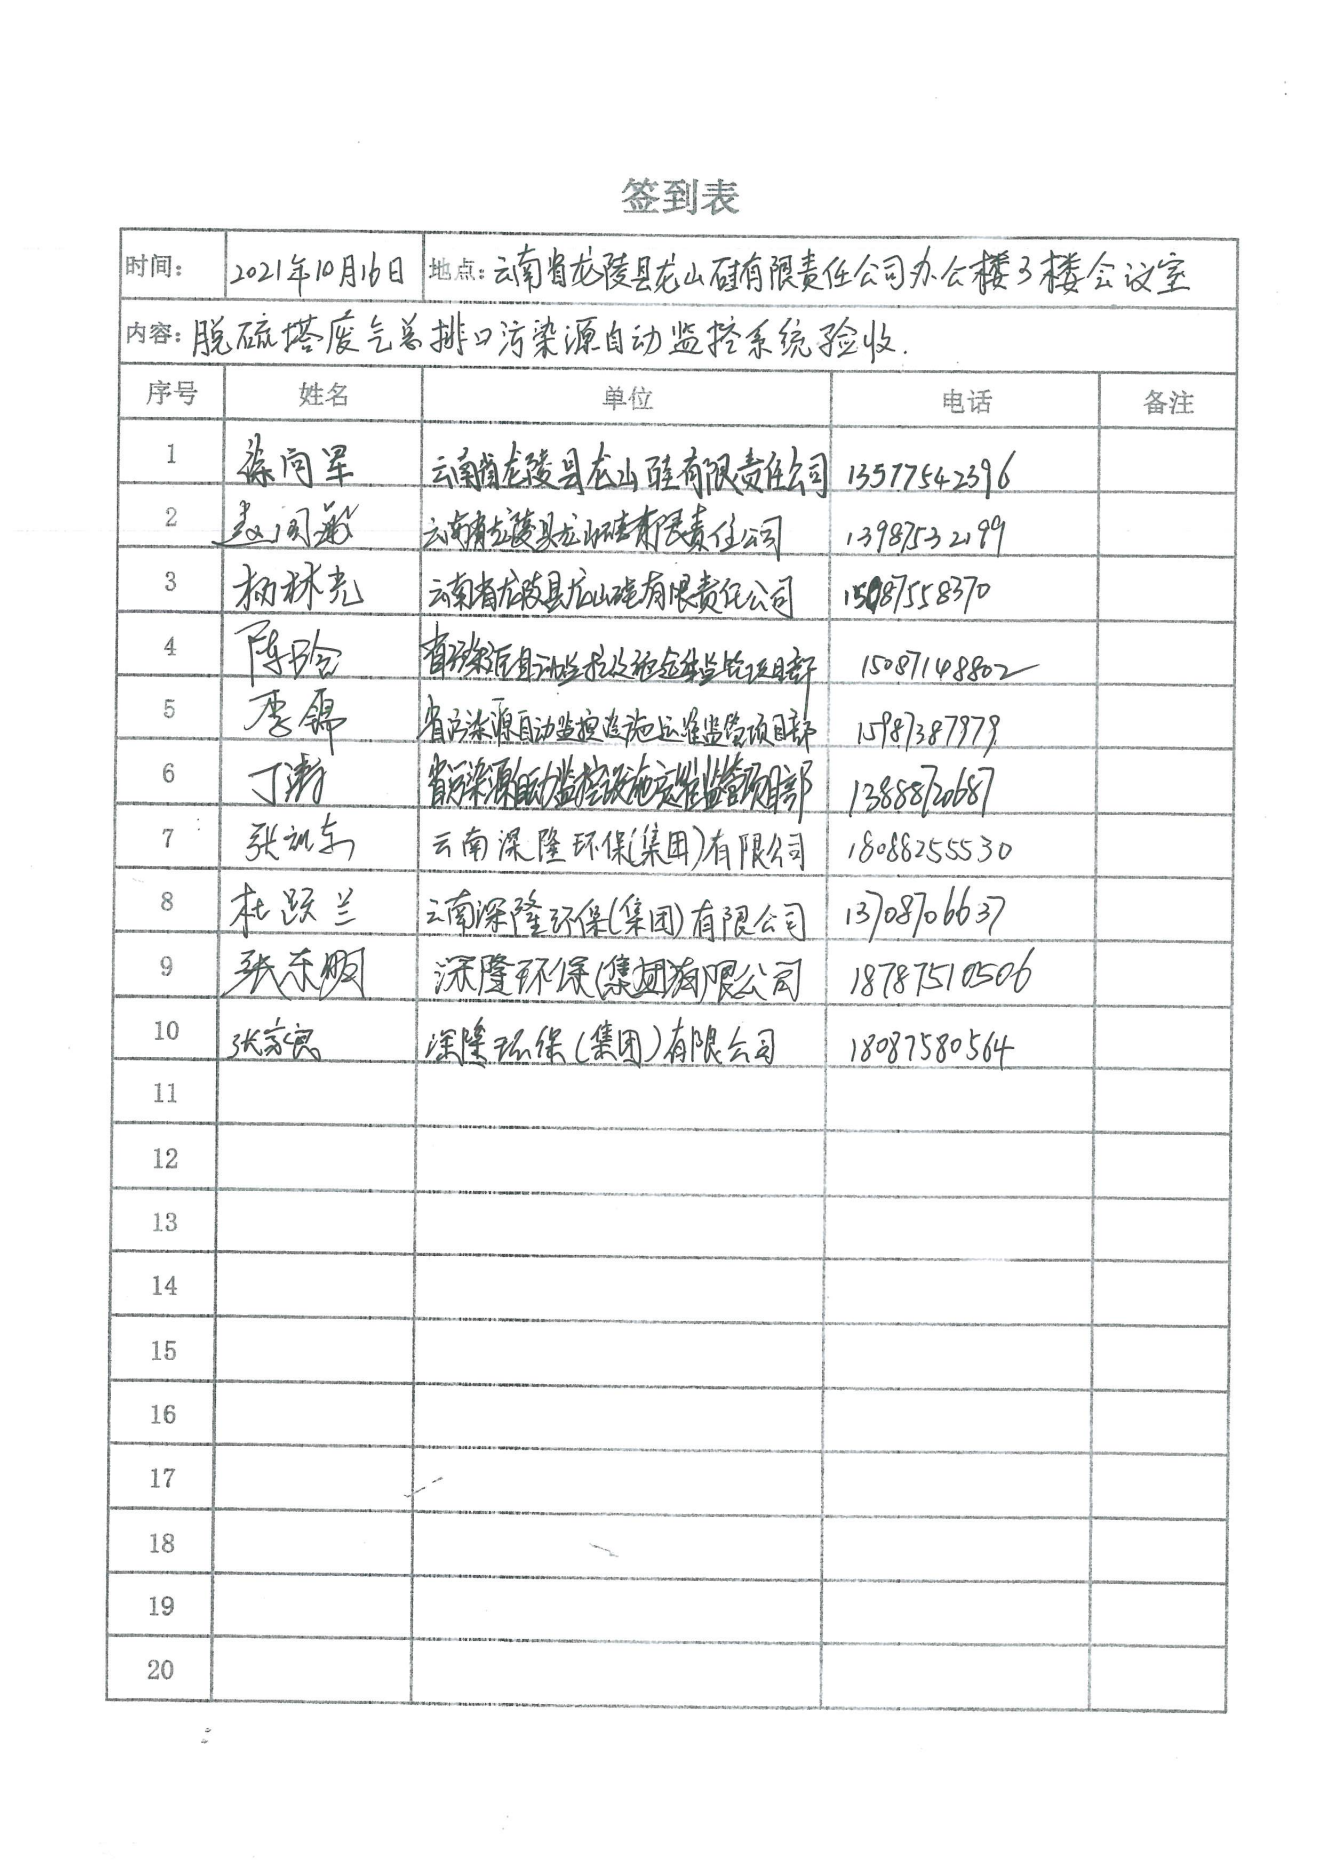 签到表
时间: 2021年10月16日 地点: 云南省龙陵县龙山硅有限责任公司办公楼3楼会议室
内容: 脱硫塔废气总排口污染源自动监控系统验收.
序号 姓名 单位 电话 备注
1 徐向军 云南省龙陵县龙山硅有限责任公司 13577542396
2 云南省龙陵县龙山硅有限责任公司 13987532199
3 杨林光 云南省龙陵县龙山硅有限责任公司 15087558370
4 陈晗 省污染源自动监控设施运维监管项目部 15087148802
5 李锦 省污染源自动监控设施运维监管项目部 15987387979
6 丁涛 省污染源自动监控设施运维监管项目部 13888720687
7 云南深隆环保(集团)有限公司 18088255530
8 杜跃兰 云南深隆环保(集团)有限公司 13708706637
9 张东明 深隆环保(集团)有限公司 18787510506
10 张家良 深隆环保(集团)有限公司 18087580564
11
12
13
14
15
16
17
18
19
20